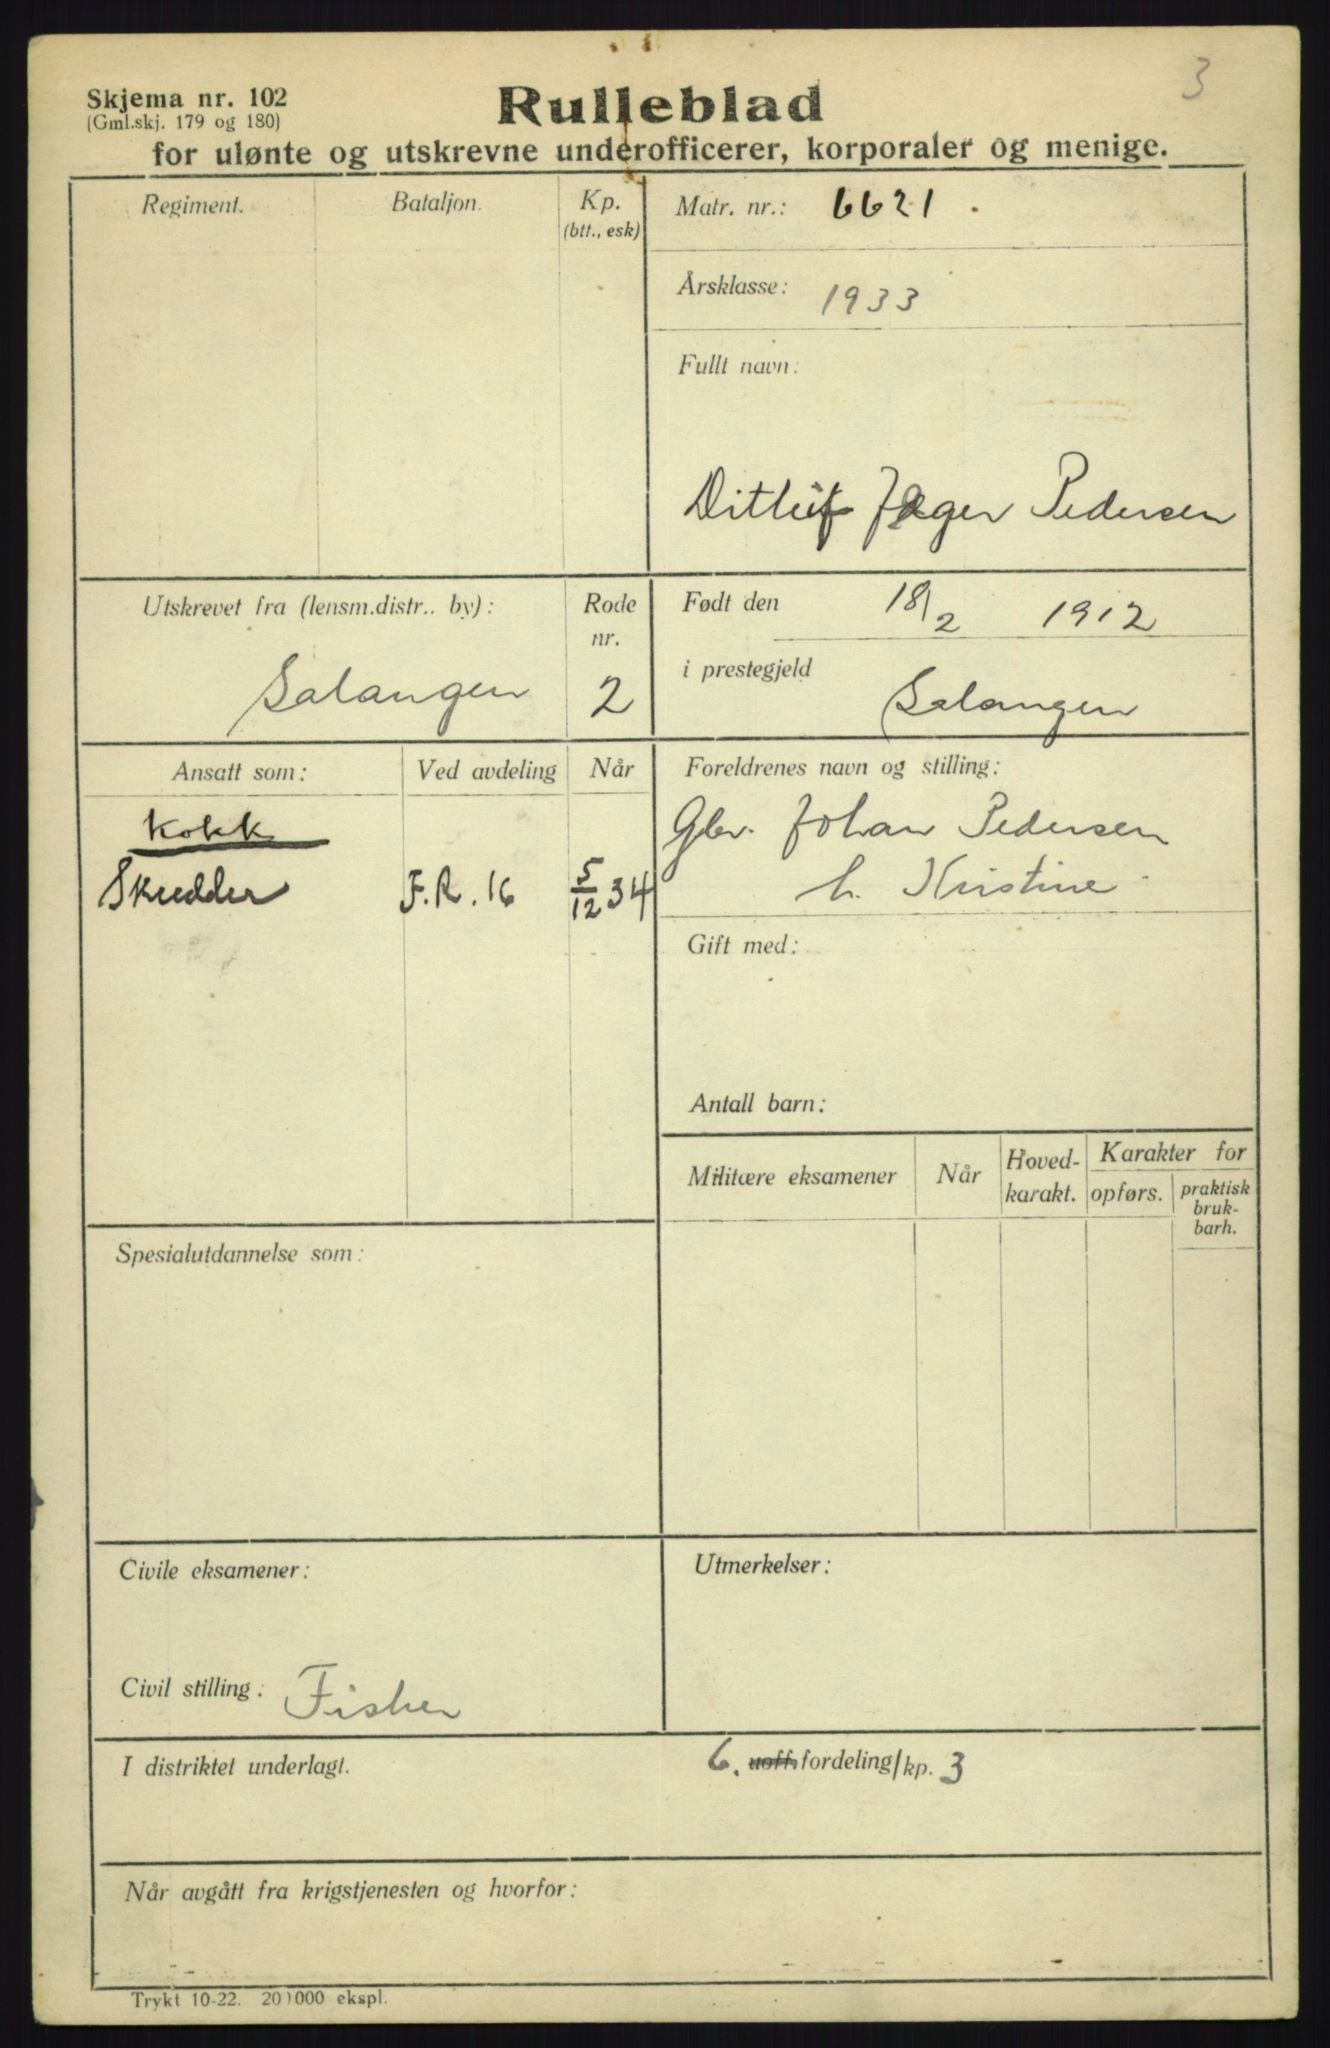 3
Skjema nr. 102
(Gml.skj. 179 og 180)
Rulleblad
for ulønte og utskrevne underofficerer, korporaler og menige.
Regiment.
Bataljon.
Kp.
(btt., esk)
Matr. nr.: 6621
Årsklasse: 1933
Fullt navn:
Ditluf Jæger Pedersen
Utskrevet fra (lensm.distr.. by):
Salangen
Rode
nr.
2
Født den 18/2 1912
i prestegjeld Salangen
Ansatt som:
Ved avdeling
Når
Kokk
Skudder F.R. 16 5/12 34
Foreldrenes navn og stilling:
Gbr. Johan Pedersen
h. Kristine
Gift med:
Antall barn:
Militære eksamener
Når
Hoved-
karakt.
Karakter for
opførs.
praktisk
bruk-
barh.
Spesialutdannelse som:
Civile eksamener:
Civil stilling: Fisker
Utmerkelser:
I distriktet underlagt. 6. uoff. fordeling/kp. 3
Når avgått fra krigstjenesten og hvorfor:
Trykt 10-22. 20 000 ekspl.